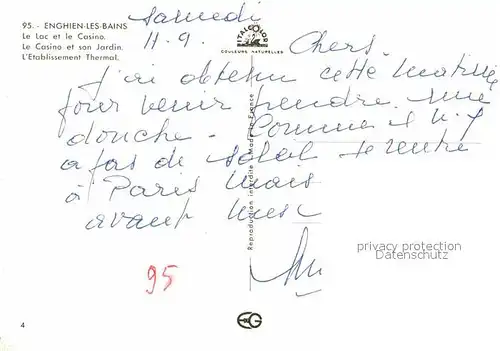 95. - ENGHIEN-LES-BAINS
Le Lac et le Casino.
Le Casino et son Jardin.
L'Etablissement Thermal.
Samedi
11.9.
ITALCOLOR
COULEURS NATURELLES
Chers
J'ai obtenu cette matinée
pour venir prendre une
douche - Comme il n'y
a pas de soleil je rentre
à Paris mais
avant
Reproduction interdite - Made in France
privacy protection
Datenschutz
95
4
EG